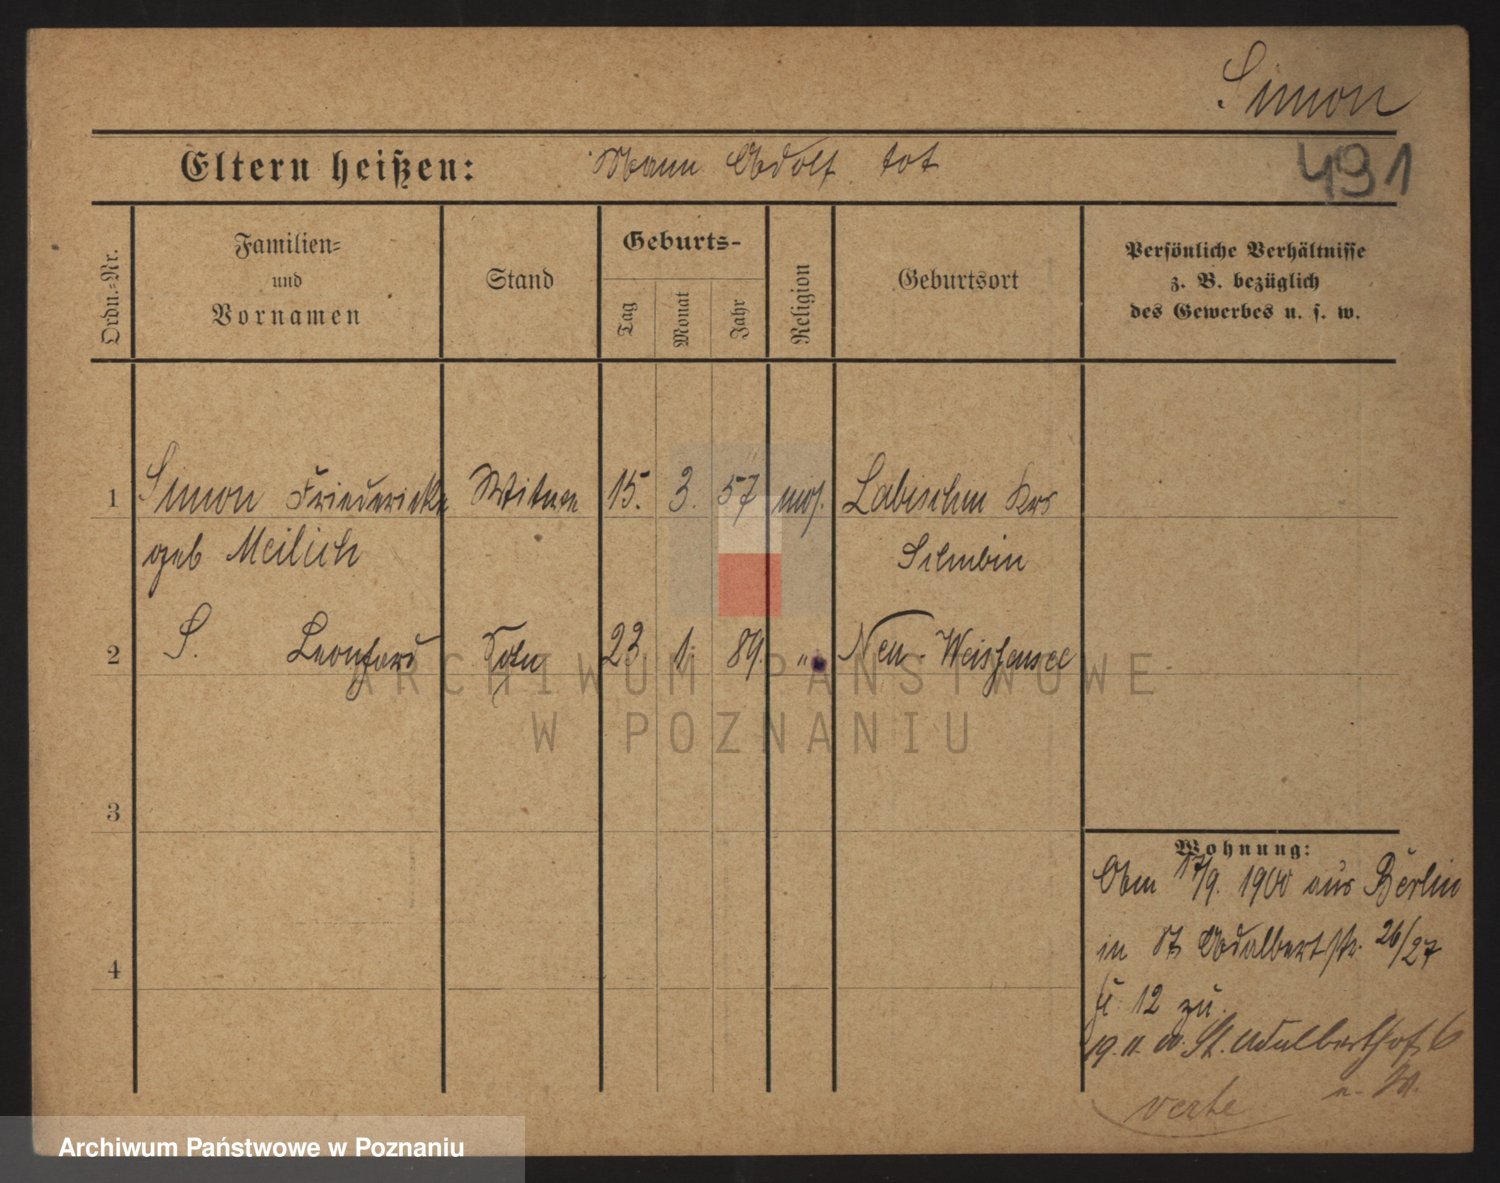 Simon
Eltern heißen: Mann Adolf tot
491
Ordn.-Nr.
Familien-
und
Vornamen
Stand
Geburts-
Tag
Monat
Jahr
Religion
Geburtsort
Persönliche Verhältnisse
z. B. bezüglich
des Gewerbes u. s. w.
1 Simon Friedericke Witwe 15. 3. 57 mos. Labischin Krs
geb Meilich Schubin
2 S. Leonhard Sohn 23 1. 89. " Neu-Weishensee
3
4
Wohnung:
Abm 17/9. 1900 aus Berlin
in St Adalbertstr. 26/27
12 zu.
19. 11. 00. St. Adalberthof 6
verte
ARCHIWUM PAŃSTWOWE
W POZNANIU
Archiwum Państwowe w Poznaniu